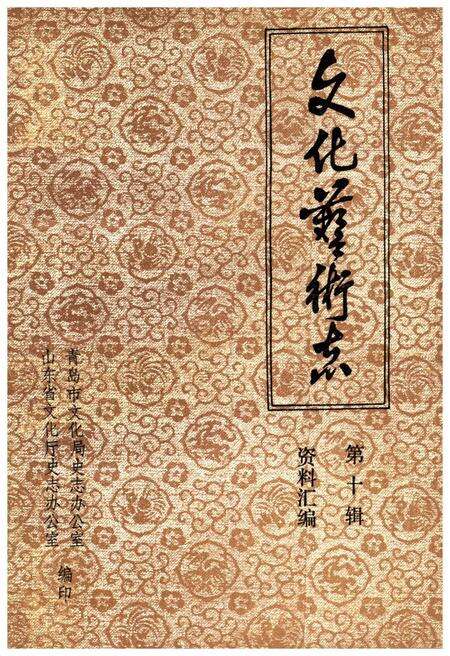 文化藝術志
第十辑
资料汇编
青岛市文化局史志办公室
山东省文化厅史志办公室
编印